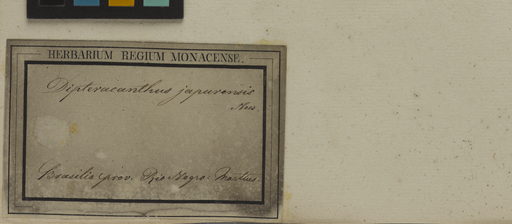 HERBARIUM REGIUM MONACENSE.
Dipteracanthus japurensis
Nees
Brasilia prov. Rio Negro. Martius.